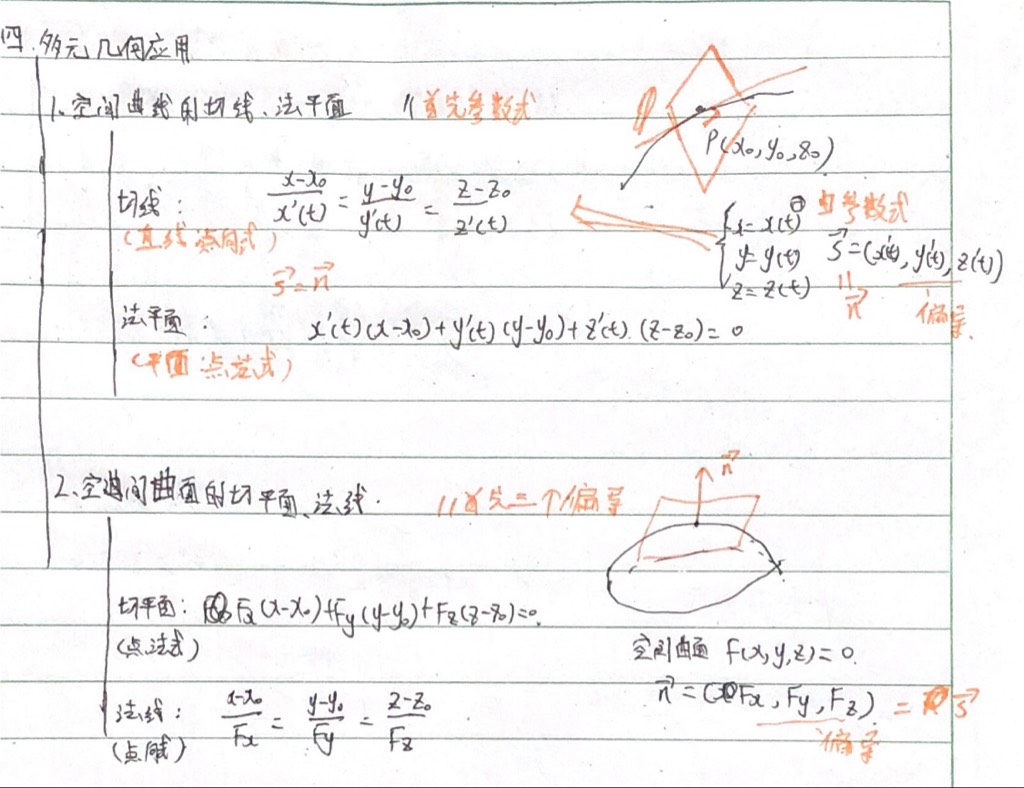 四.多元几何应用
1.空间曲线的切线、法平面 // 首先参数式
P(x₀,y₀,z₀)
切线: (x-x₀)/x'(t) = (y-y₀)/y'(t) = (z-z₀)/z'(t)
(直线点向式)
{ x=x(t) ① 参数式
y=y(t) s⃗=(x'(t), y'(t), z'(t))
z=z(t) = n⃗ 偏导.
s⃗=n⃗
法平面: x'(t)(x-x₀)+y'(t)(y-y₀)+z'(t).(z-z₀)=0
(平面点法式)
2.空间曲面的切平面、法线. // 首先三个偏导
n⃗
切平面: Fx(x-x₀)+Fy(y-y₀)+Fz(z-z₀)=0.
(点法式)
空间曲面 F(x,y,z)=0.
n⃗=(Fx, Fy, Fz) = s⃗
偏导
法线: (x-x₀)/Fx = (y-y₀)/Fy = (z-z₀)/Fz